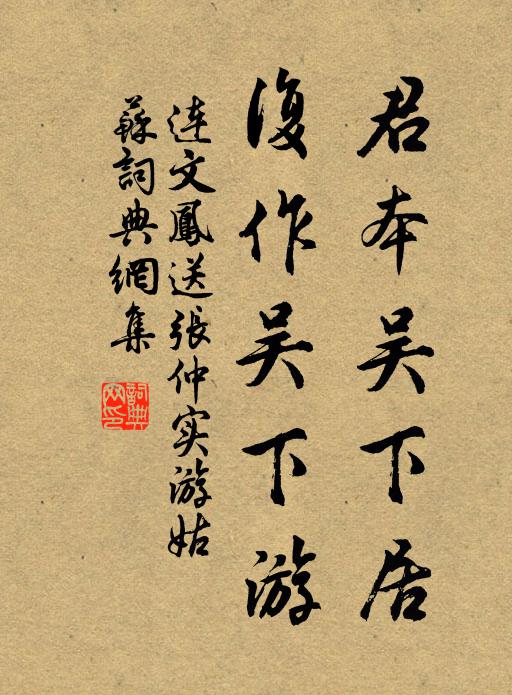 君本吴下居
復作吴下游
连文鳳送張仲实游姑
蘇詞典網集
詞典网印